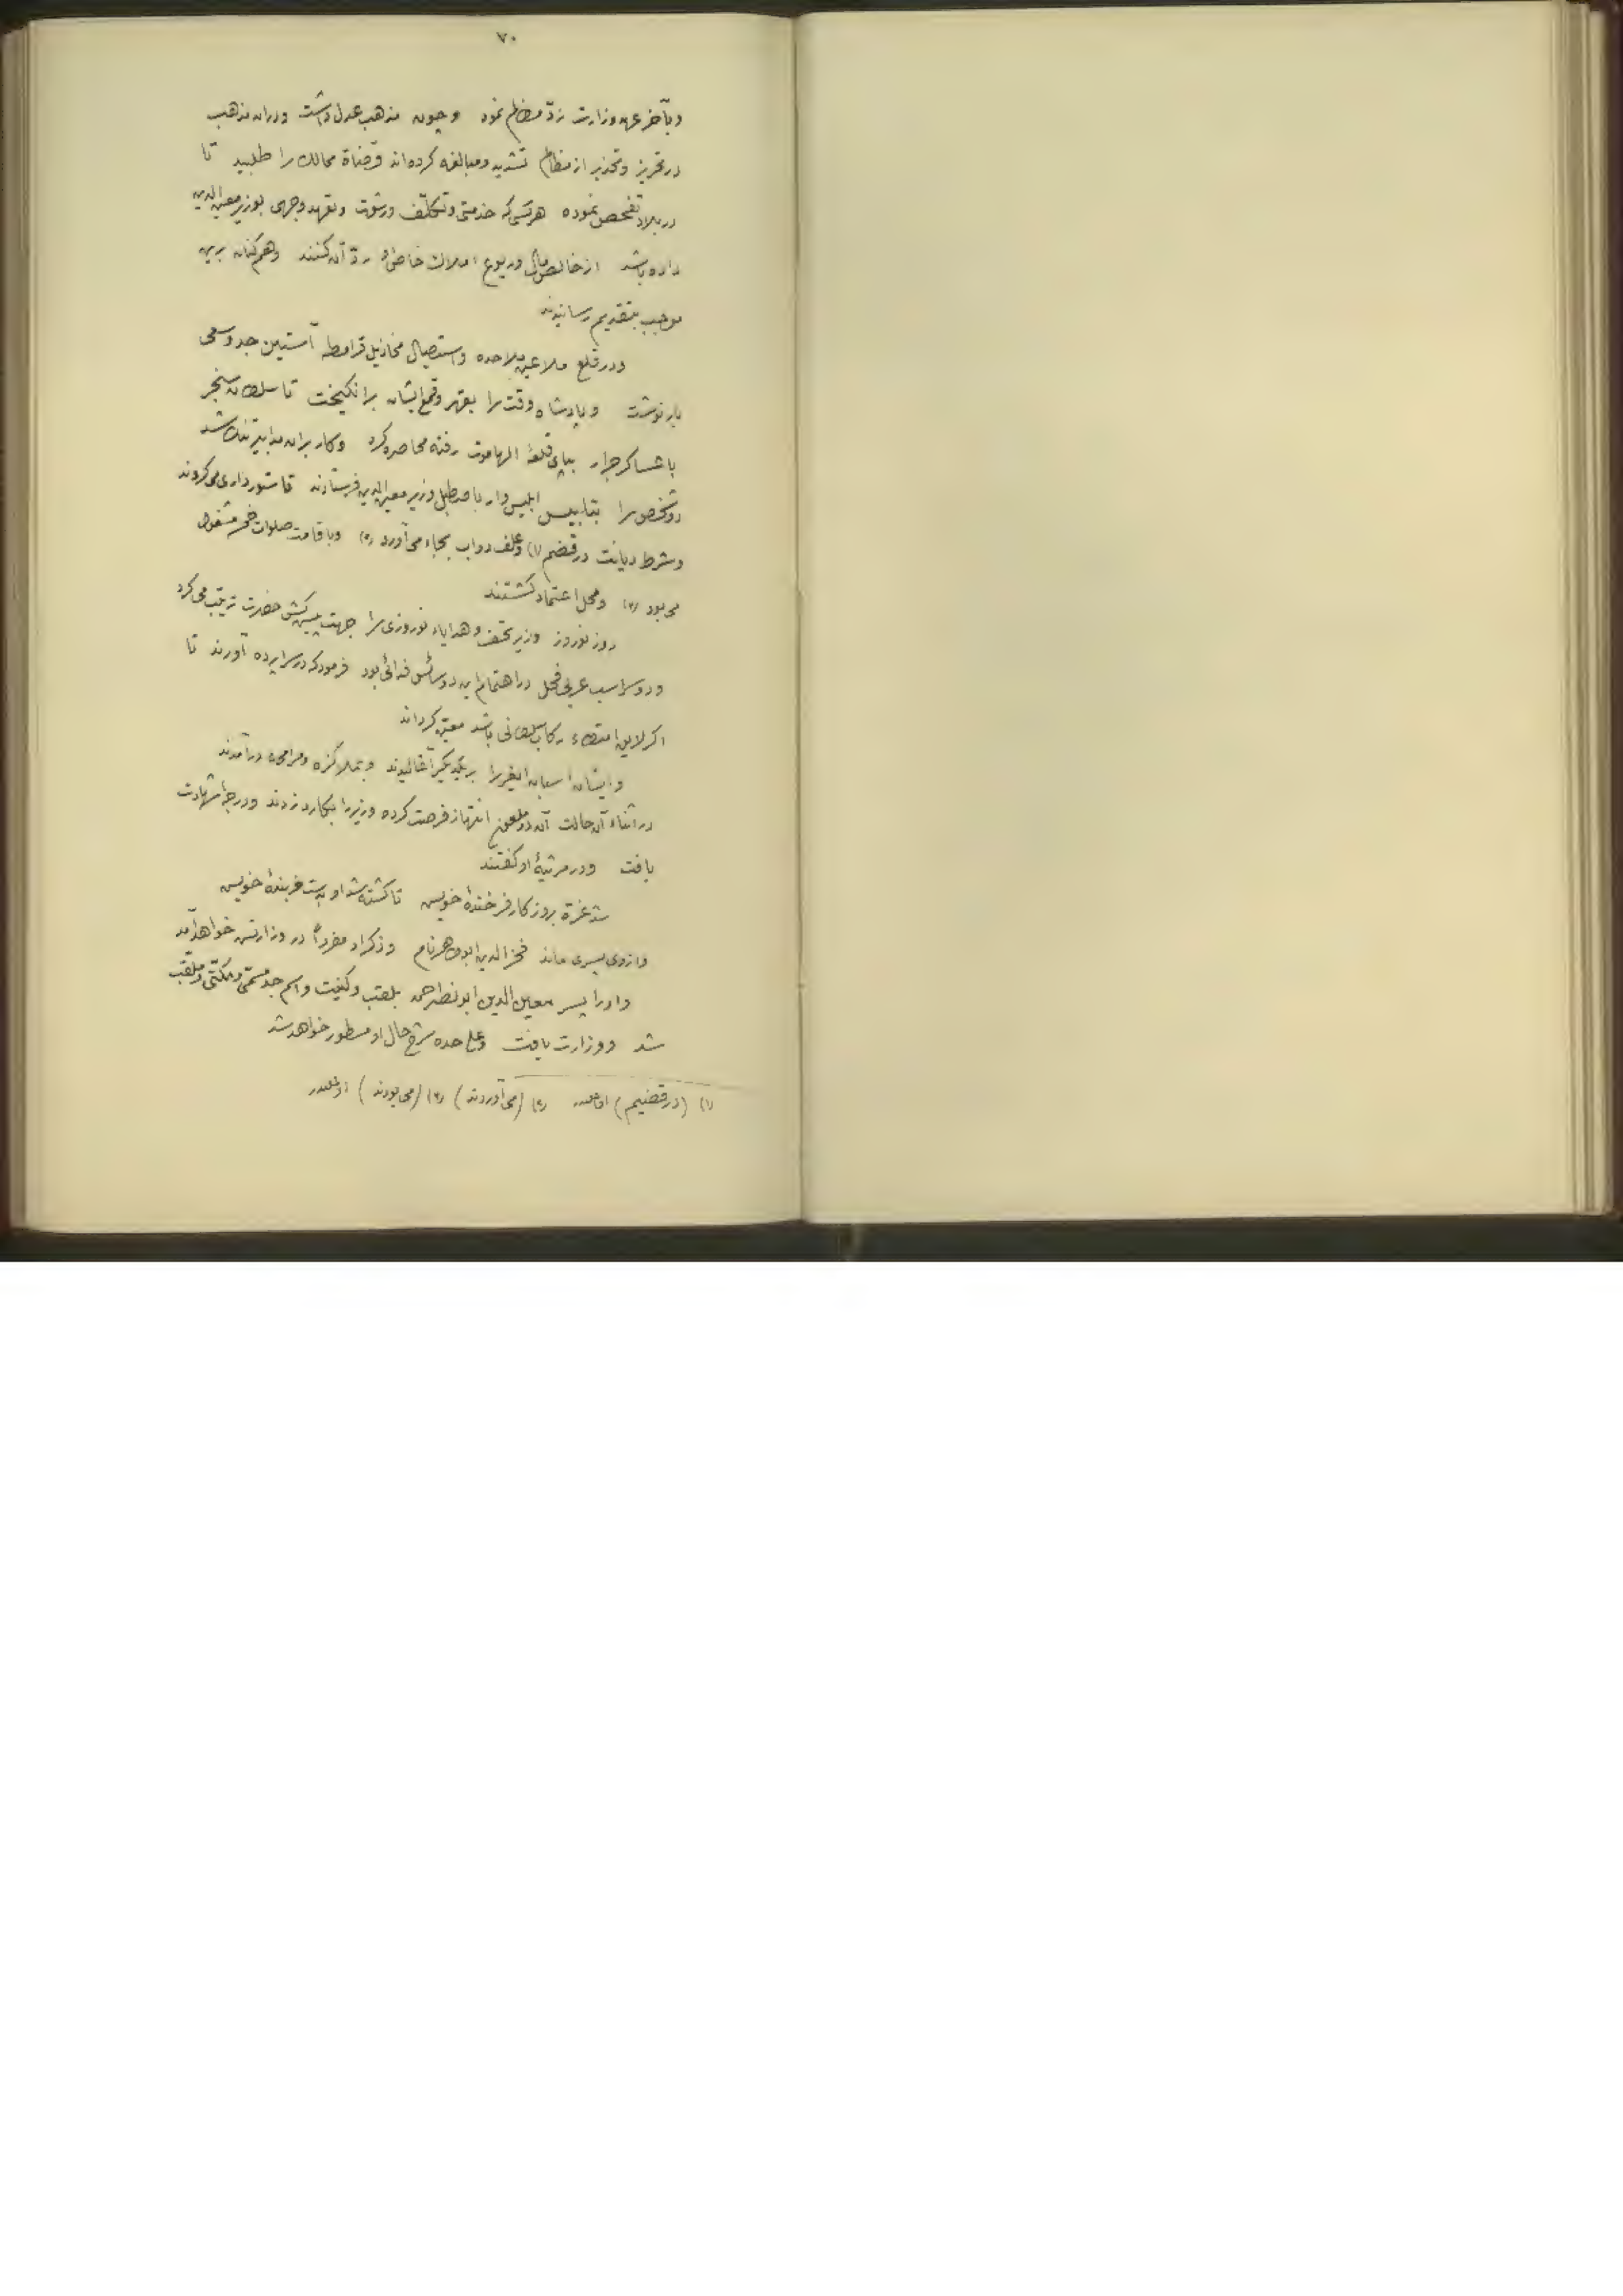 ٧٠
وبآخر عهد وزارت ردّ مظالم نمود وچون مذهب عدل داشت ودران مذهب
در تحریز وتحذیر از مظالم تشدید ومبالغه کرده‌اند قضاة ممالک را طلبید تا
در بلاد تفحص نموده هر کسی که خدمتی وتکلّف ورشوت وتعهد وجهی بوزیر معین الدین
داده باشد از خالص مال وریوع املاک خاصّ او ردّ آن کنند وهم‌کنان برین
موجب بتقدیم رسانیدند
ودر قلع ملاعین ملاحده واستیصال مخاذیل قرامطه آستین جد وسعی
باز نوشت وپادشاه وقت را بقهر وقمع ایشان برانکیخت تا سلطان سنجر
با عساکر جرار بپای قلعۀ الهاموت رفته محاصره کرد وکار بران مدابیر تنک شد
دو شخص را بتلبیس ابلیس‌وار باصطبل وزیر معین الدین فرستادند تا ستورداری می‌کردند
وشرط دیانت در قضم (١) وعلف دواب بجاء می‌آورد (٢) وباقامت صلوات خمس مشغول
می‌بود (٣) ومحل اعتماد کشتند
روز نوروز وزیر تحف وهدایاء نوروزی را جهت پیش‌کش حضرت ترتیب می‌کرد
ودو سر اسب عربی فحل در اهتمام این دو سائس فدائی بود فرمود که در سراپرده آورند تا
اکر لایق امتطاء رکاب سلطانی باشد معیّن کرداند
وایشان اسبان ایغر را بر یکدیکر آغالیدند و بملاکزه ومرامحه درآمدند
در اثناء آن حالت آن دو ملعون انتهاز فرصت کرده وزیر را بکارد زدند ودرجۀ شهادت
یافت ودر مرثیۀ او کفتند
شد غرّه بروزکار فرخندۀ خویس تا کشته شد او بدست خربندۀ خویس
وازوی پسری ماند فخر الدین ابو طاهر نام وذکر او مفرداً در وزارتس خواهد آمد
واورا پسر معین الدین ابو نصر احمد بلقب وکنیت واسم جد مسمّی ومکنّی وملقب
شد ووزارت یافت وعلی حده شرح حال او مسطور خواهد شد
(١) (در قضیم) (٢) (می‌آوردند) (٣) (می‌بودند)